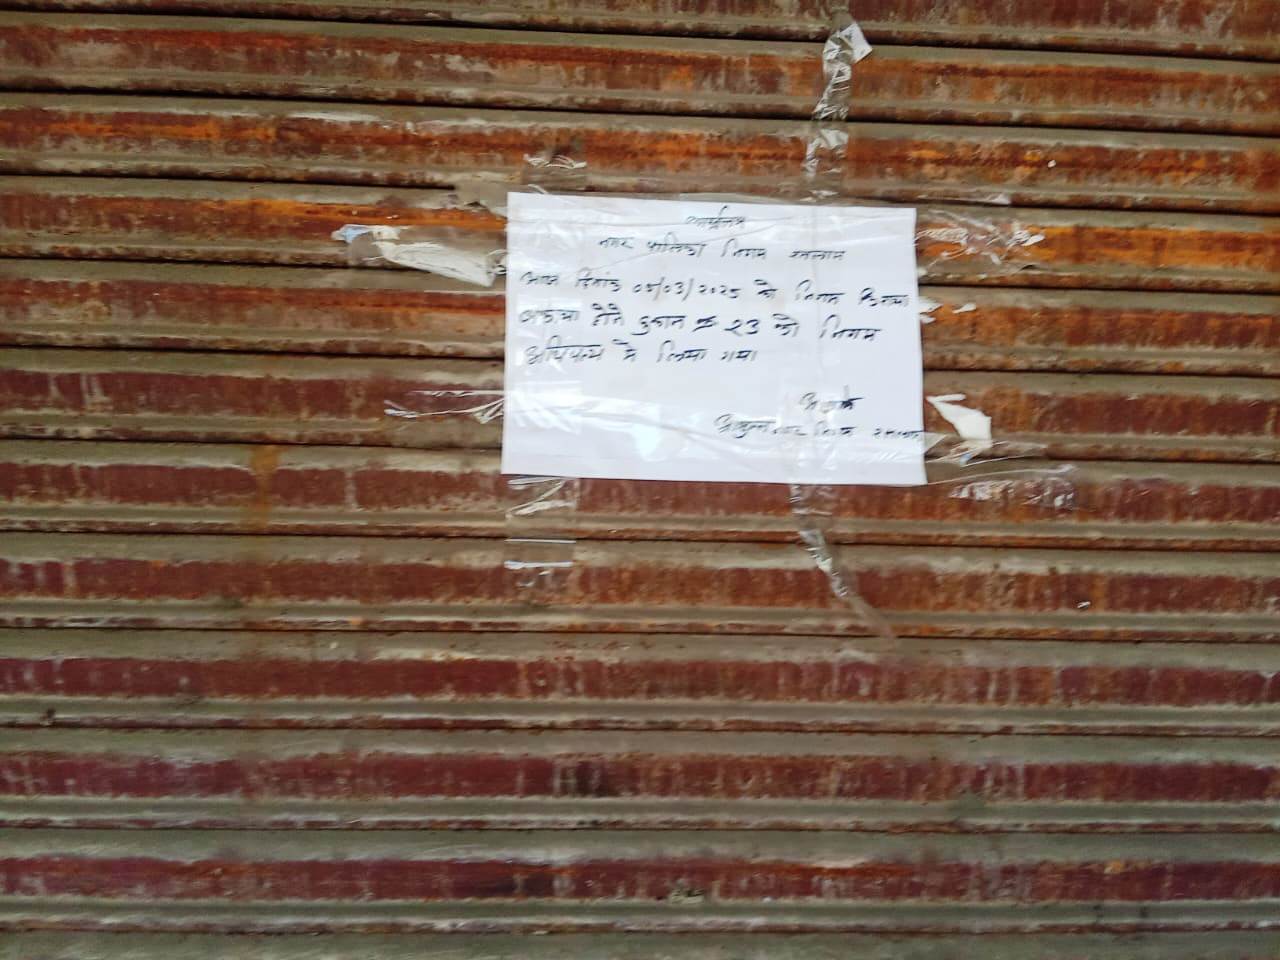 कार्यालय
नगर पालिका निगम रतलाम
आज दिनांक 05/03/2025 को निगम किराया
बकाया होने दुकान क्र 23 को निगम
आधिपत्य में लिया गया
आयुक्त नगर निगम रतलाम